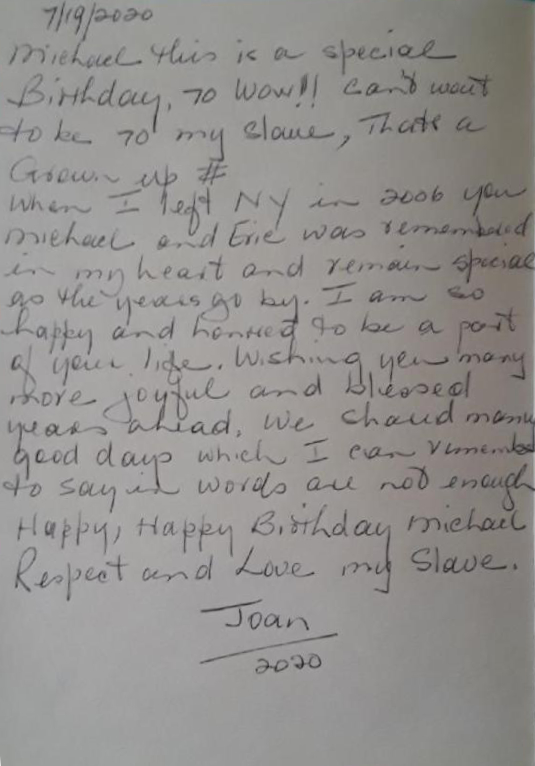 7/19/2020
Michael this is a special
Birthday, 70 Wow!! Can't wait
to be 70 my slave, Thats a
Grown up #
When I left NY in 2006 you
Michael and Eric was remembered
in my heart and remain special
as the years go by. I am so
happy and honored to be a part
of your life. Wishing you many
more joyful and blessed
years ahead. We shared many
good days which I can remember
to say in words are not enough
Happy, Happy Birthday Michael
Respect and Love my Slave.
Joan
2020